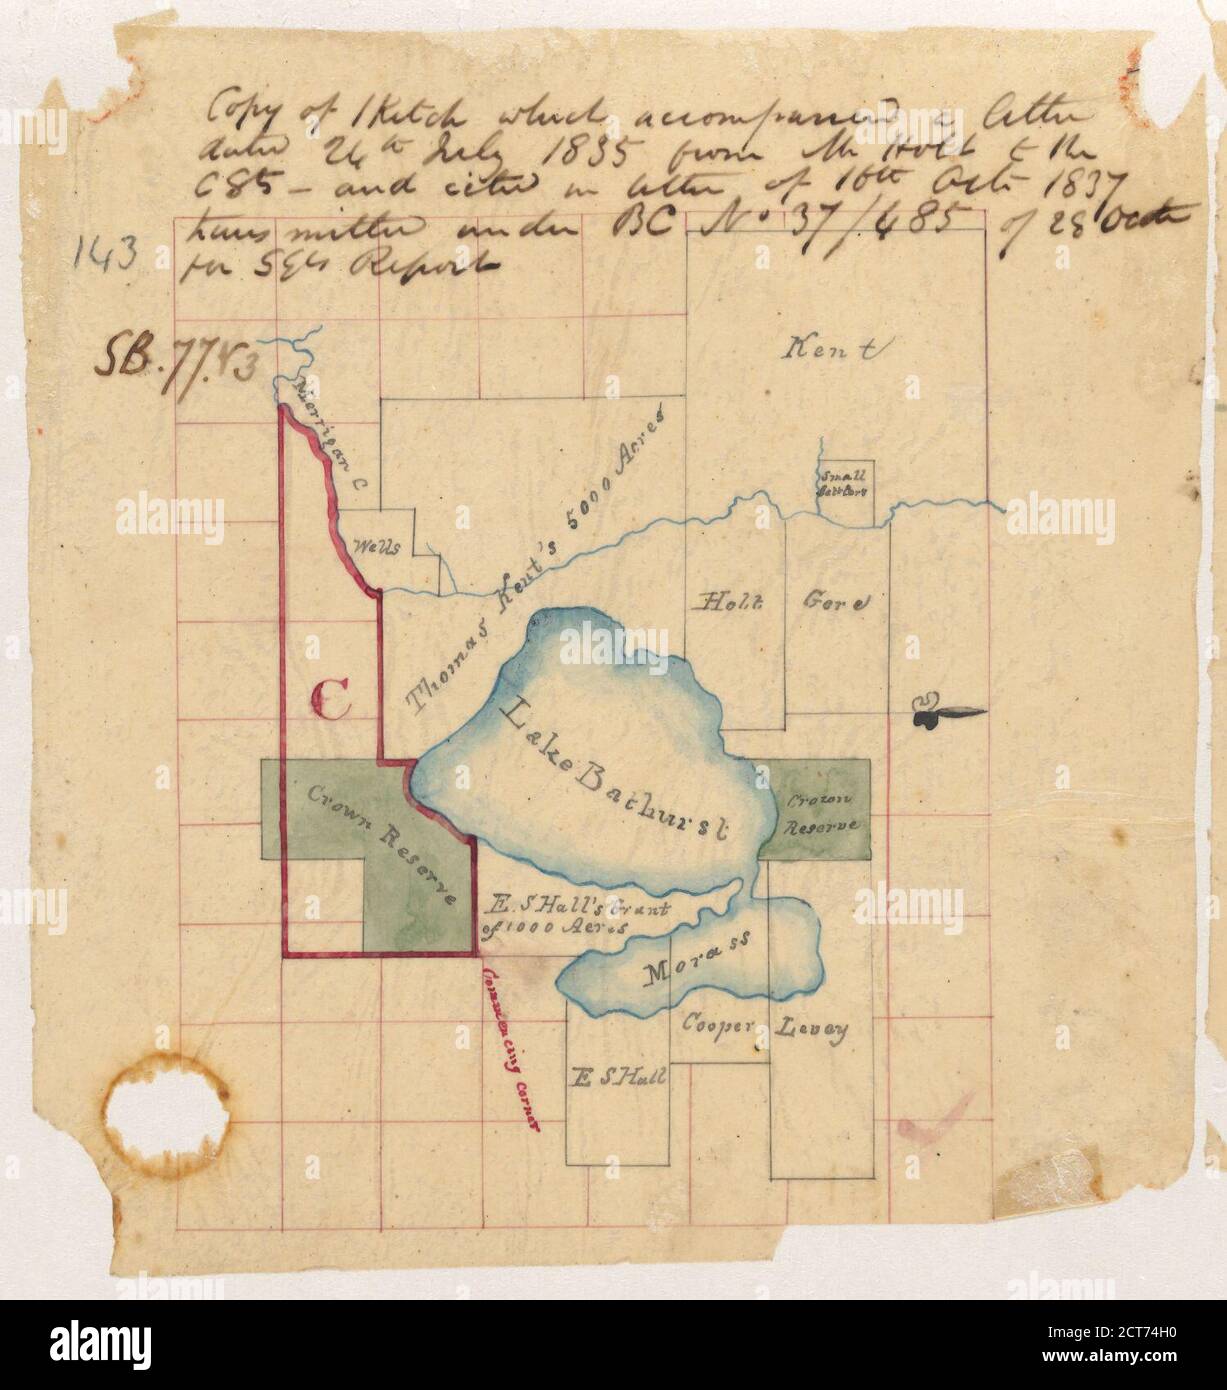 Copy of Sketch which accompanied a letter
dated 24th July 1835 from Mr Holt to the
CSS — and cited in letter of 16th Octr 1837
transmitted under BC No 37/485 of 28 Octr
for SGls Report
143
SB.77.83
Merrigan C
Kent
Small
Settlers
Thomas Kent's 5000 Acres
Wells
Holt
Gore
C
Lake Bathurst
Crown Reserve
Crown
Reserve
E. S Hall's Grant
of 1000 Acres
Morass
Cooper
Levey
E S Hall
Commencing corner
alamy
Image ID: 2CT74H0
www.alamy.com